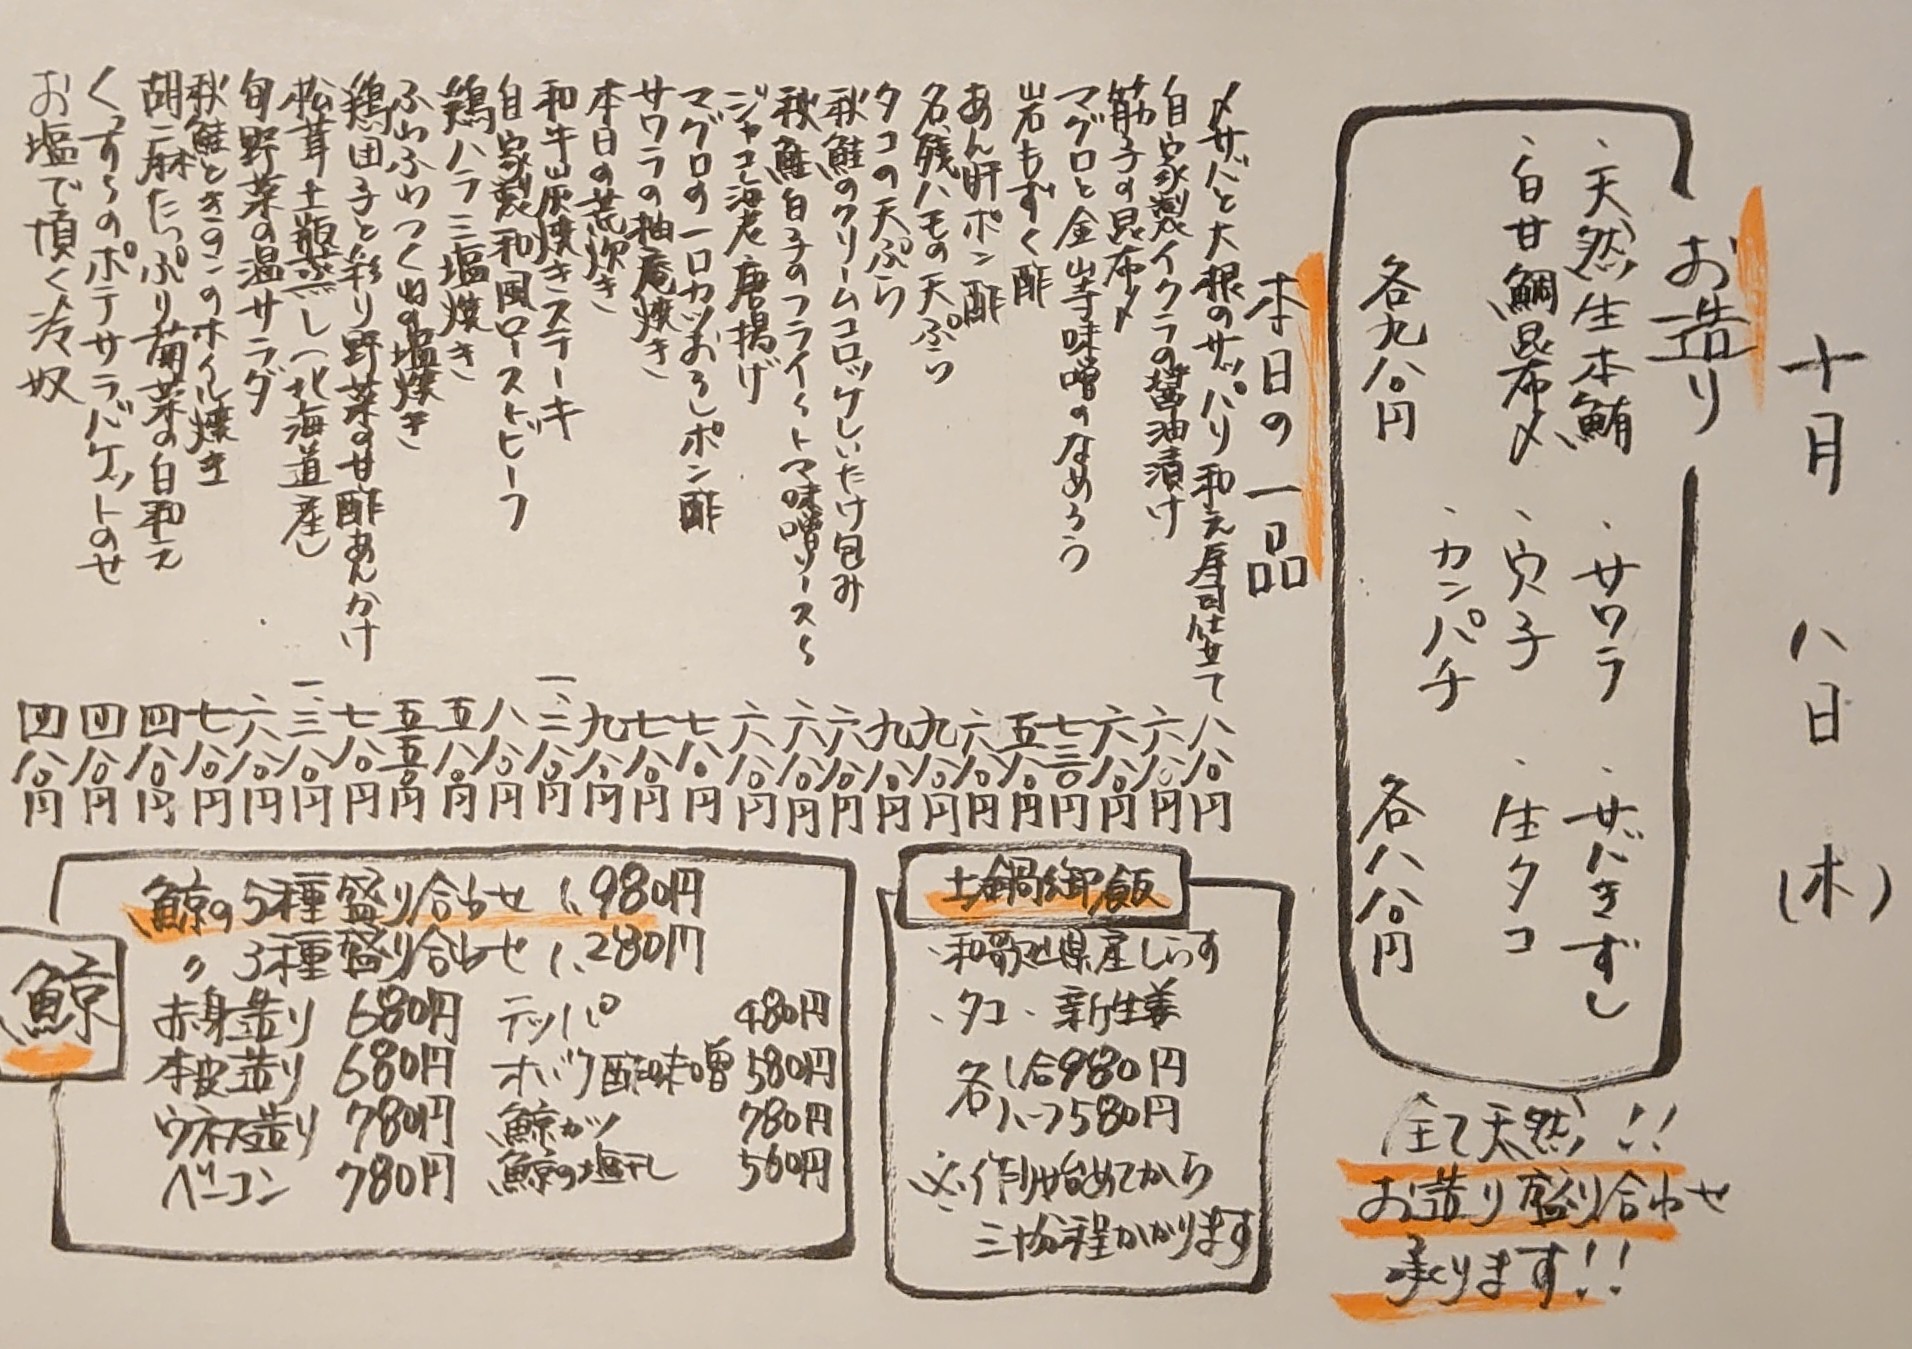 十月 八日 (木)
お造り
・天然生本鮪 ・サワラ ・サバきずし
・白甘鯛昆布〆 ・穴子 ・生タコ
・カンパチ
各九八〇円 各八八〇円
全て天然!!
お造り盛り合わせ
承ります!!
本日の一品
〆サバと大根のサッパリ和え寿司仕立て 八八〇円
自家製イクラの醤油漬け 六八〇円
筋子の昆布〆 六八〇円
マグロと金山寺味噌のなめろう 七三〇円
岩もずく酢 五八〇円
あん肝ポン酢 六八〇円
名残ハモの天ぷら 九八〇円
タコの天ぷら 九八〇円
秋鮭のクリームコロッケしいたけ包み 六八〇円
秋鮭白子のフライ〜トマト味噌ソース〜 六八〇円
ジャコ海老唐揚げ 六八〇円
マグロの一口カツおろしポン酢 七八〇円
サワラの柚庵焼き 七八〇円
本日の荒炊き 九八〇円
和牛山灰焼きステーキ 一、二八〇円
自家製和風ローストビーフ 八八〇円
鶏ハラミ塩焼き 五八〇円
ふわふわつくねの塩焼き 五五〇円
鶏団子と彩り野菜の甘酢あんかけ 七八〇円
松茸土瓶蒸し(北海道産) 一、三八〇円
旬野菜の温サラダ 六八〇円
秋鮭ときのこのホイル焼き 七八〇円
胡麻たっぷり菊菜の白和え 四八〇円
くっすらのポテサラバケットのせ 四八〇円
お塩で頂く冷奴 四八〇円
土鍋御飯
・和歌山県産しらす
・タコ ・新生姜
各 1合980円
ハーフ580円
※作り始めてから
三十分程かかります
鯨
鯨の5種盛り合わせ 1,980円
〃 3種盛り合わせ 1,280円
赤身造り 680円 テッパ 480円
本皮造り 680円 オバケ酢味噌 580円
ウネス造り 780円 鯨カツ 780円
ベーコン 780円 鯨の塩干し 560円